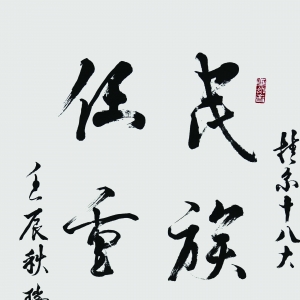 十八大
民族
任重
壬辰秋